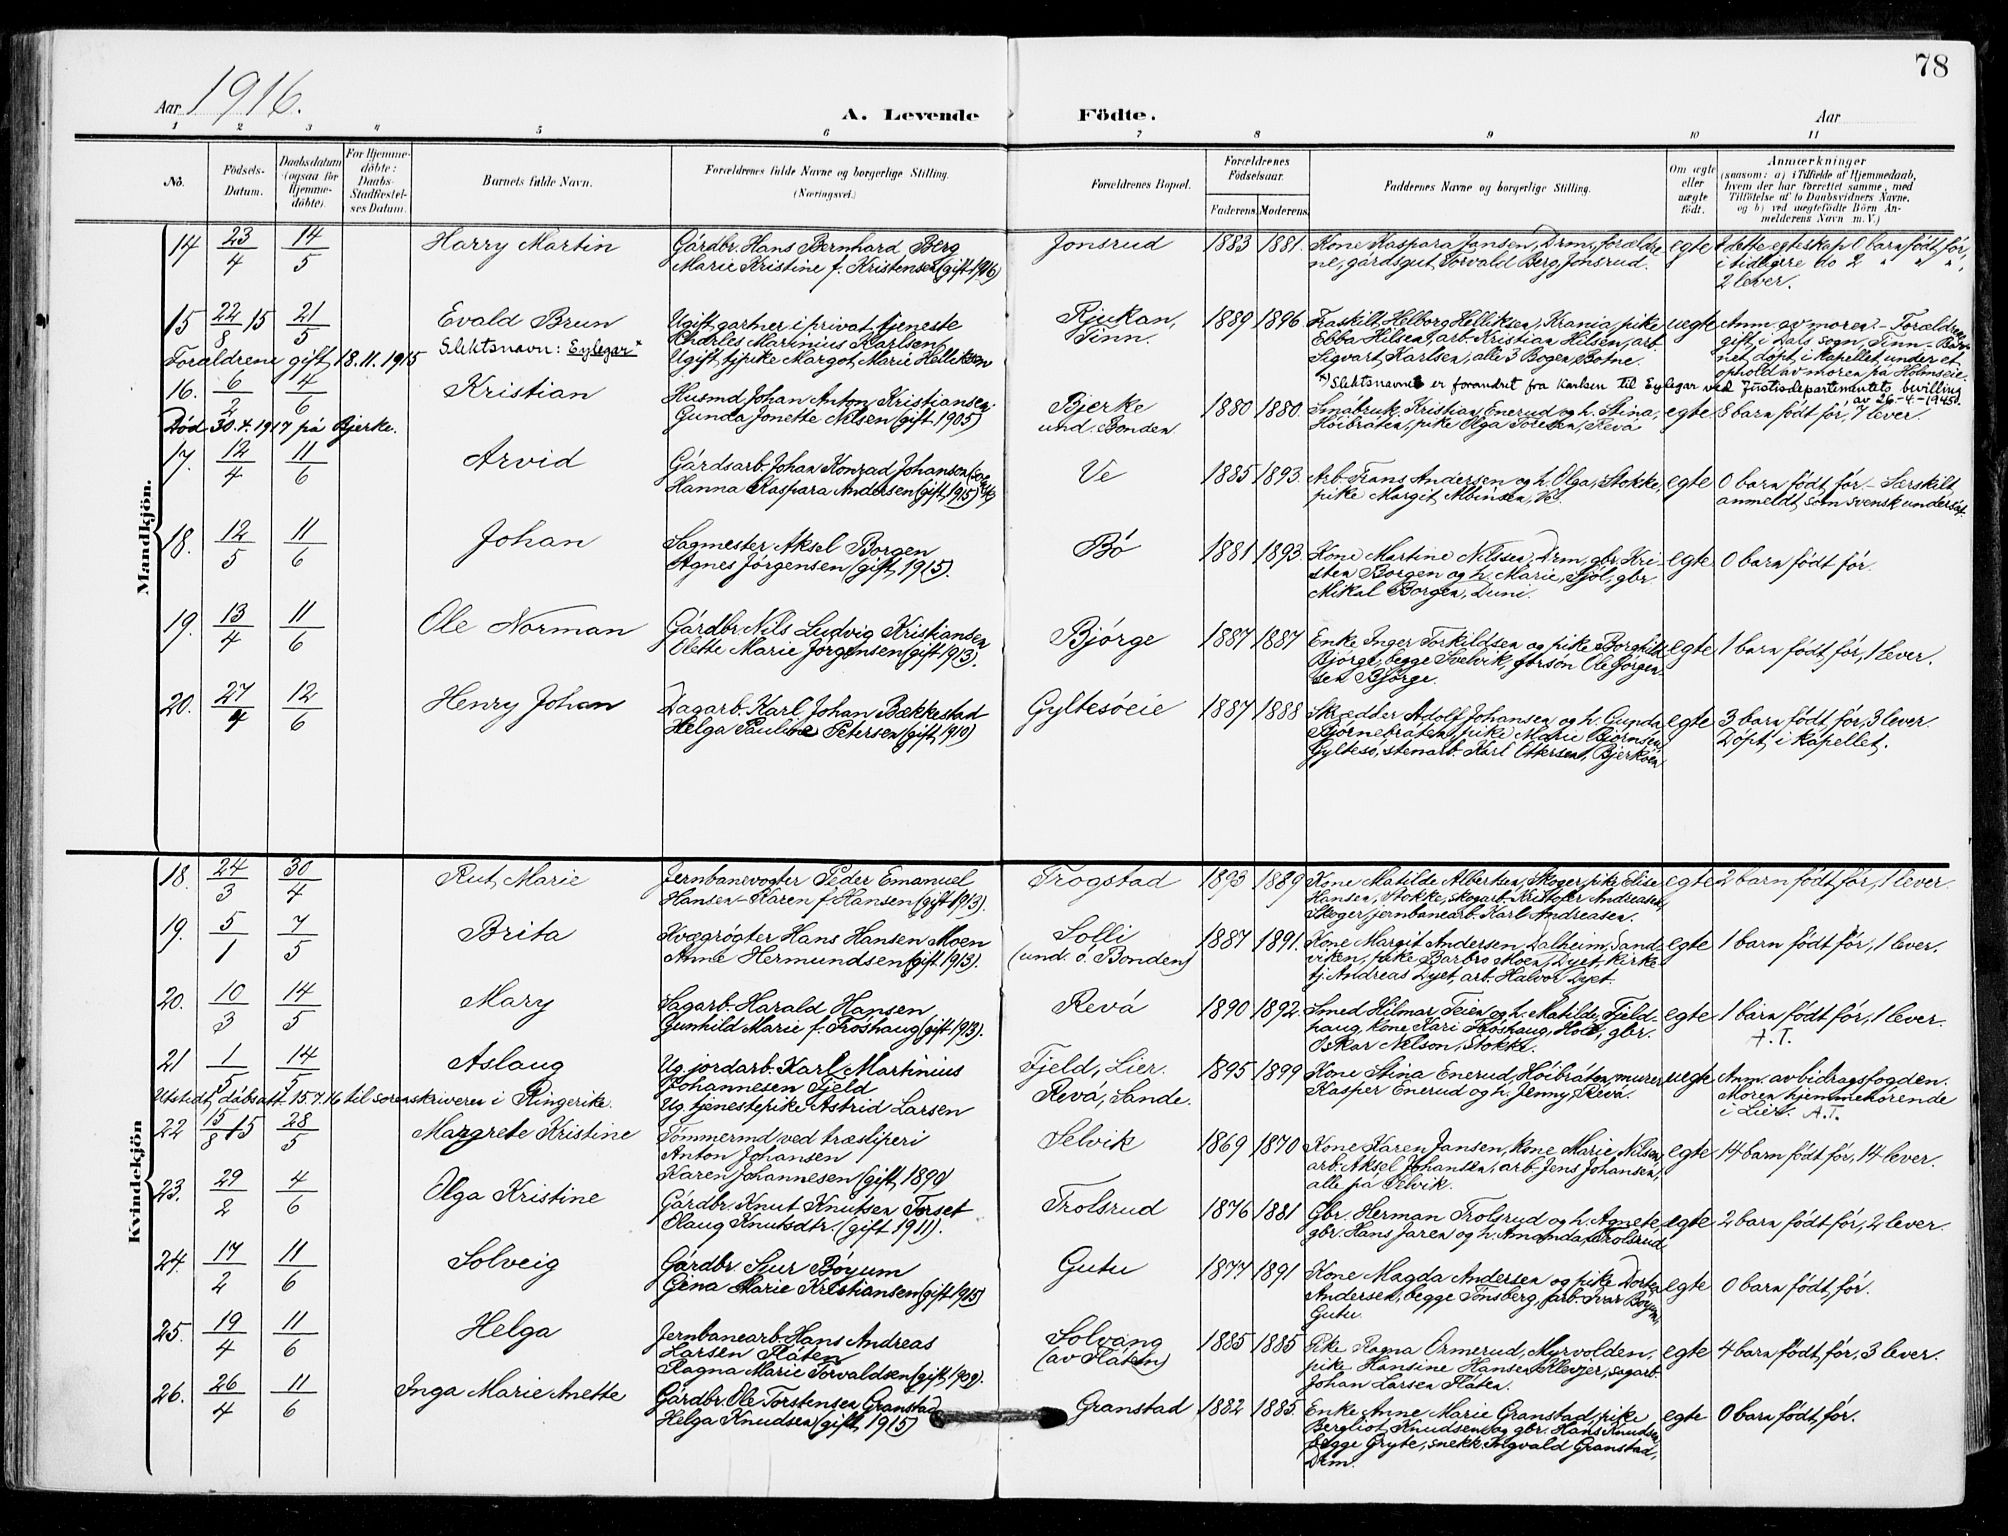 78
Aar 1916.
A. Levende Födte.
Aar
1 2 3 4 5 6 7 8 9 10 11
No.
Födsels-Datum.
Daabsdatum (ogsaa for Hjemme-döbte).
For Hjemme-döbte: Daabs-Stadfæstel-ses Datum.
Barnets fulde Navn.
Forældrenes fulde Navne og borgerlige Stilling.
(Næringsvei.)
Forældrenes Bopæl.
Forældrenes Födselsaar.
Faderens. Moderens.
Faddernes Navne og borgerlige Stilling.
Om ægte eller uægte födt.
Anmærkninger
(saasom: a) i Tilfælde af Hjemmedaab,
hvem der har forrettet samme, med
Tilföielse af to Daabsvidners Navne.
og b) ved uægtefödte Börn An-
melderens Navn m. V.)
Mandkjön.
14 23/4 14/5 Harry Martin Gårdbr. Hans Bernhard Berg Jonsrud 1883 1881. Kone Kaspara Jansen, Drm., foreldre- egte I dette egteskap 0 barn født før,
Marie Kristine f. Kristensen (gift 1916) ne, gårdsgut Torvald Berg, Jonsrud. i tidligere do 2 " " ",
2 lever.
15 22/8 15 21/5 Evald Brun Ugift gartner i privat tjeneste Rjukan, 1889 1896 Fraskilt Helborg Helliksen, Krania, pike uegte Anm. av moren. - Forældrene
Slektsnavn: Eylegar* Charles Marinius Karlsen Tinn. Ebba Hilsen, arb. Kristian Hilsen, arb. gift i Dals sogn, Tinn - Bar-
Forældrene gift 18.11.1915 Ugift tjpike Margot Marie Helliksen Sigvart Karlsen, alle 3 Bogen, Botne. net døpt i kapellet under et
ophold av moren på Holmseie.
*) Slektsnavnet er forandret fra Karlsen til Eylegar ved Justisdepartementets bevilling
av 26-4-1945.
16. 6/2 4/6 Kristian Husmd. Johan Anton Kristiansen. Bjerke 1880 1880. Småbruk. Kristian Enerud og h. Stina, egte 8 barn født før, 7 lever.
Død 30.4.1917 på Bjerke. Gunda Jonette Nilsen (gift 1905) und. Bonden Høibråten, pike Olga Toresen, Revå
17. 12/4 11/6 Arvid Gårdsarb. Johan Konrad Johansen Ve 1885 1893. Arb. Frans Andersen og h. Olga, Stokke, egte 0 barn født før - Særskilt
Hanna Kaspara Andersen (gift 1915) pike Margit Albinsen, Ve. anmeldt som svensk undersåt.
18. 12/5 11/6 Johan Sagmester Aksel Borgen Bö 1881 1893. Kone Martine Nilsen, Drm, gbr. Kri- egte 0 barn født før.
Agnes Jørgensen (gift 1915). sten Borgen og h. Marie, Sjøl, gbr.
Mikal Borgen, Duni.
19. 13/4 11/6 Ole Norman Gårdbr. Nils Ludvig Kristiansen Bjørge 1887 1887 Enke Inger Torkildsen og pike Borghild egte 1 barn født før, 1 lever.
Olette Marie Jørgensen (gift 1913). Bjørge, begge Svelvik, gårdsøn Ole Jørgen-
sen Bjørge.
20. 27/4 12/6 Henry Johan Dagarb. Karl Johan Bækkestad Gyltesøeie 1887 1888 Skrædder Adolf Johansen og h. Gunda egte 3 barn født før, 3 lever.
Helga Pauline Petersen (gift 1910) Bjørnebråten, pike Marie Bjørnsen, Døpt i kapellet.
Gyltesø, stenarb. Karl Ottersen, Bjerkøen
Kvindekjön
18. 24/3 30/4 Rut Marie Jernbanevogter Peder Emanuel Trogstad 1893 1889 Kone Matilde Albertsen, Skoger, pike Elise egte 2 barn født før, 1 lever.
Hansen - Karen f. Hansen (gift 1913). Hansen, Stokke, skogarb. Kristofer Andreasen,
Skoger, jernbanearb. Karl Andreasen.
19. 5/1 7/5 Brita Kvægrøgter Hans Hansen Moen Solli 1887 1891. Kone Margit Andersen, Dalheim, Sand- egte 1 barn født før, 1 lever.
Anne Hermundsen (gift 1913). (und. ö. Bonden) viken, pike Barbro Moen, Dyet, kirke-
tj. Andreas Dyet, arb. Halvor Dyet.
20. 10/3 14/5 Mary Sagarb. Harald Hansen Revå 1890 1892. Smed Hilmar Teien og h. Matilde, Fjeld- egte 1 barn født før, 1 lever.
Gunhild Marie f. Frøshaug (gift 1913). haug, kone Kari Frøshaug, Holt, gbr. A.T.
Oskar Nilson, Stokke.
21 1/5 14/5 Aslaug Ug. jordarb. Karl Martinius Fjeld, Lier. 1895 1899 Kone Stina Enerud, Høibråten, murer uegte Anm. av bidragsfogden.
Johannesen Fjeld Revå, Sande. Kasper Enerud og h. Jenny, Revå. Moren hjemmehørende
Utstedt dåbsatt. 15.7.16 til sorenskriveren i Ringerike. Ug. tjenestepike Astrid Larsen i Lier. A.T.
22 15/8 15 28/5 Margrete Kristine Tømmermd. ved træsliperi Selvik 1869 1870 Kone Karen Jansen, kone Marie Nilsen, egte 14 barn født før, 14 lever.
Anton Johansen arb. Aksel Johansen, arb. Jens Johansen,
Karen Johannesen (gift 1890) alle på Selvik.
23. 29/2 4/6 Olga Kristine Gårdbr. Knut Knutsen Torset Trolsrud 1876 1881 Gbr. Herman Trolsrud og h. Agnete, egte 2 barn født før, 2 lever.
Olaug Knutsdtr. (gift 1911). gbr. Hans Jaren og h. Amanda, Trolsrud
24. 17/2 11/6 Solveig Gårdbr. Sjur Bøyum Gutu 1877 1891 Kone Magda Andersen og pike Dortea egte 0 barn født før.
Gina Marie Kristiansen (gift 1915) Andersen, begge Tønsberg, farb. Ivar Bøyum,
Gutu.
25. 19/4 11/6 Helga Jernbanearb. Hans Andreas Solvang 1885 1885 Pike Ragna Ormerud, Myrvolden, egte 4 barn født før, 3 lever.
Larsen Flåten (av Flåten) pike Hansine Hansen Klevjer, sagarb.
Ragna Marie Torvaldsen (gift 1909). Johan Larsen Flåten.
26. 26/4 11/6 Inga Marie Anette Gårdbr. Ole Torstensen Granstad Granstad 1882 1885. Enke Anne Marie Granstad, pike egte 0 barn født før.
Helga Knudsen (gift 1915) Bergliot Knudsen og gbr. Hans Knudsen,
begge Gryte, snekk. Tolgvald Granstad,
Drm.